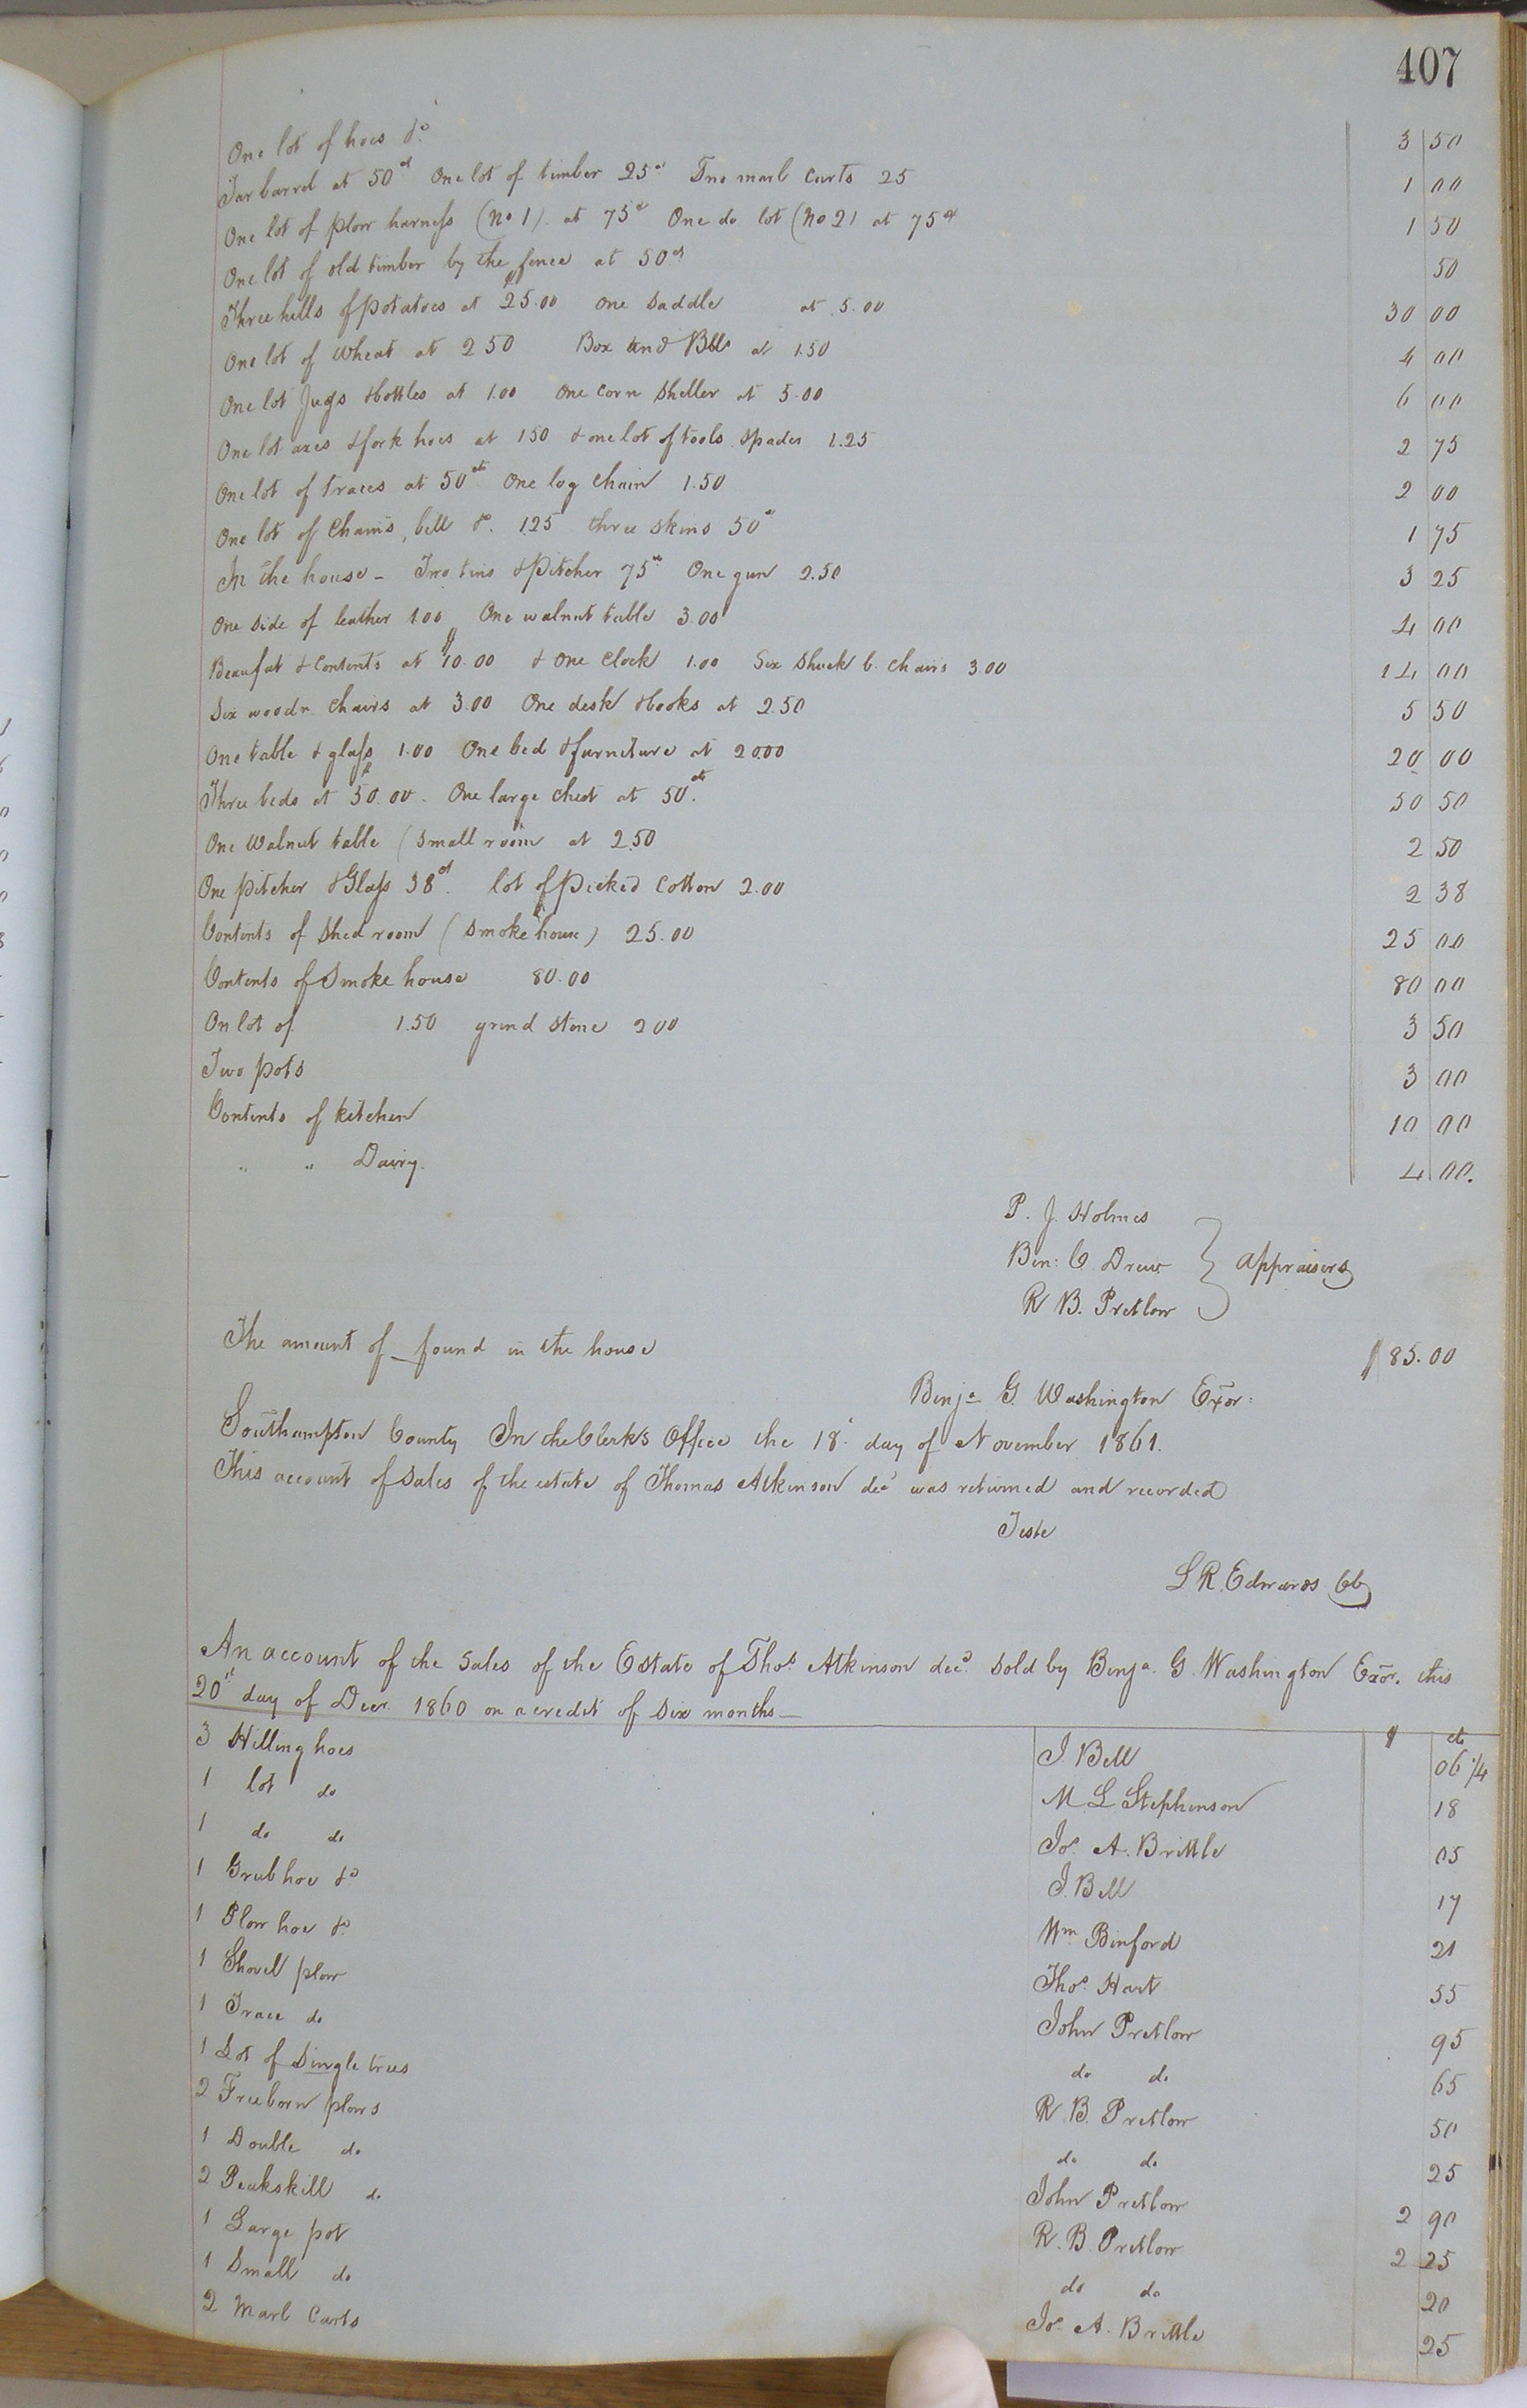 407
One lot of hoes &c 3 50
Tar barrel at 50cts One lot of timber 25cts Two marl Carts 25 1 00
One lot of plow harness (No 1) at 75cts One do lot (No 2) at 75cts 1 50
One lot of old timber by the fence at 50cts 50
Three hills of potatoes at $25.00 One Saddle at 5.00 30 00
One lot of Wheat at 2 50 Box and Bbls at 1.50 4 00
One lot Jugs & bottles at 1.00 One Corn Sheller at 5.00 6 00
One lot axes & fork hoes at 150 & one lot of tools, Spades 1.25 2 75
One lot of traces at 50cts One log Chain 1.50 2 00
One lot of Chains, bell &c. 1.25 three skins 50cts 1 75
In the house - Two tins & Pitcher 75cts One gun 2.50 3 25
One side of leather 1.00 One walnut table 3.00 4 00
Beaufat & Contents at $10.00 & One Clock 1.00 Six Shuck b. Chairs 3.00 14 00
Six woodn Chairs at 3.00 One desk & books at 2.50 5 50
One table & glass 1.00 One bed & furniture at 20.00 20 00
Three beds at $50.00 - One large Chest at 50cts. 50 50
One Walnut table (Small room at 2.50 2 50
One pitcher & Glass 38cts. lot of picked Cotton 2.00 2 38
Contents of Shed room (Smoke house) 25.00 25 00
Contents of Smoke house 80.00 80 00
On lot of 1.50 grind Stone 2 00 3 50
Two pots 3 00
Contents of kitchen 10 00
" " Dairy. 4 00.
P. J. Holmes
Ben: C. Drew } appraisers
R B. Pretlow
The amount of _ found in the house $85.00
Benja G. Washington Exor:
Southampton County In the Clerk's Office the 18th day of November 1861.
This account of Sales of the estate of Thomas Atkinson decd was returned and recorded
Teste
L R. Edwards Clk
An account of the Sales of the Estate of Thos. Atkinson decd. Sold by Benja. G. Washington Exor. this
20th day of Decr. 1860 on a credit of Six months—
$ cts
3 Hilling hoes J. Bell 06 1/4
1 lot do M L Stephenson 18
1 do do Jos. A. Brittle 05
1 Grub hoe &c J. Bell 17
1 Plow hoe &c Wm Binford 21
1 Shovel plow Thos. Hart 55
1 Trace do John Pretlow 95
1 Lot of Single trees do do 65
2 Freeborn plows R. B. Pretlow 50
1 Double do do do 25
2 Peakskill do John Pretlow 2 90
1 Large pot R. B. Pretlow 2 25
1 Small do do do 20
2 Marl Carts Jos. A. Brittle 25